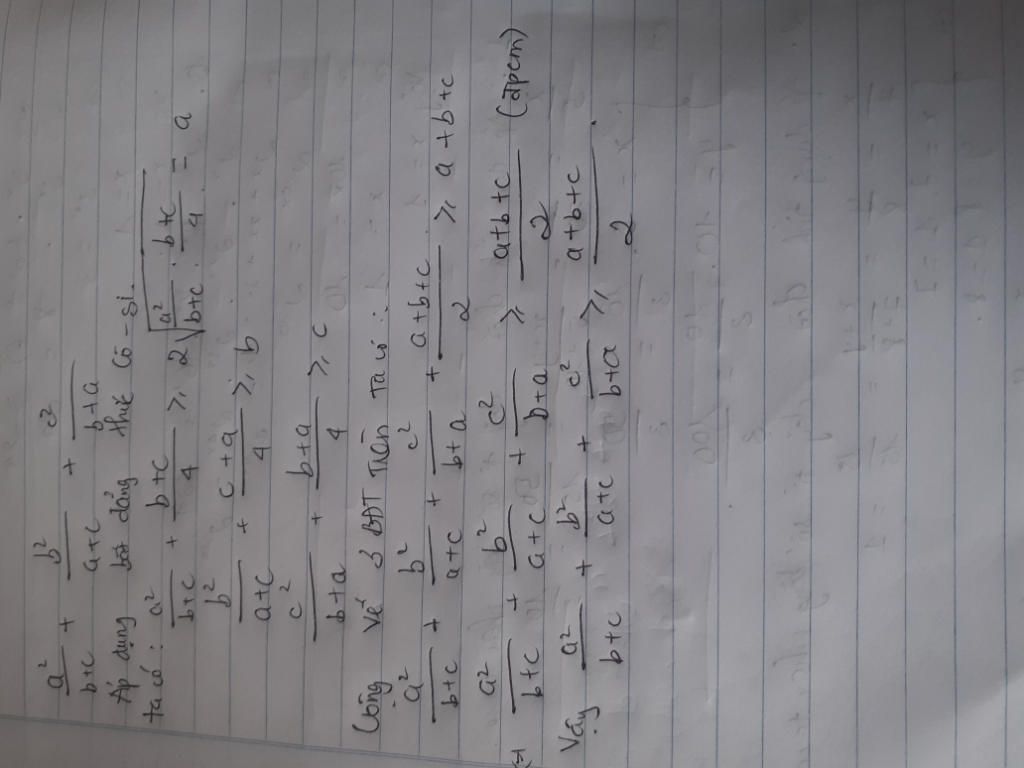 a²/(b+c) + b²/(a+c) + c²/(b+a)
Áp dụng bất đẳng thức Cô-si.
ta có: a²/(b+c) + (b+c)/4 ≥ 2√(a²/(b+c) · (b+c)/4) = a
b²/(a+c) + (c+a)/4 ≥ b
c²/(b+a) + (b+a)/4 ≥ c
Cộng vế 3 BĐT trên ta có:
a²/(b+c) + b²/(a+c) + c²/(b+a) + (a+b+c)/2 ≥ a+b+c
a²/(b+c) + b²/(a+c) + c²/(b+a) ≥ (a+b+c)/2 (đpcm)
Vậy a²/(b+c) + b²/(a+c) + c²/(b+a) ≥ (a+b+c)/2.